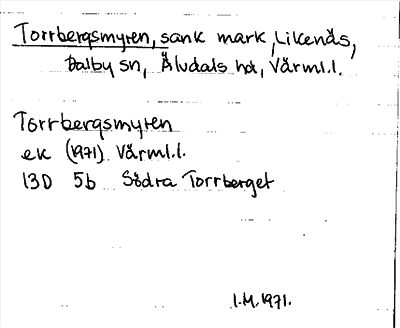 Torrbergsmyren, sank mark, Likenäs,
Dalby sn, Älvdals hd, Värml.l.
Torrbergsmyren
ek (1971) Värml.l.
13D 5b Södra Torrberget
I.M.1971.